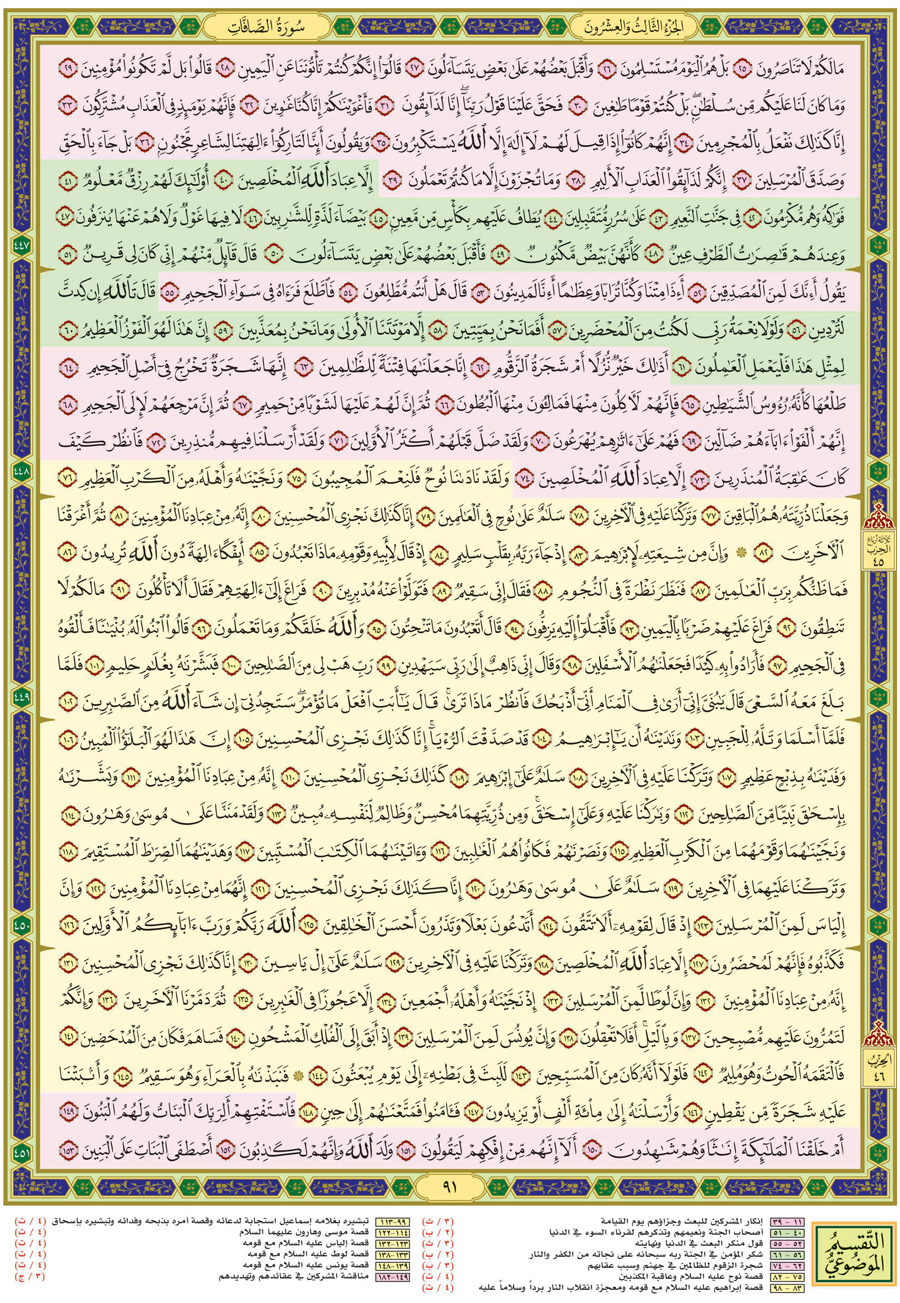 الجُزْءُ الثَّالِثُ وَالعِشْرُونَ
سُورَةُ الصَّافَّاتِ
مَالَكُمْ لَا تَنَاصَرُونَ ٢٥ بَلْ هُمُ ٱلْيَوْمَ مُسْتَسْلِمُونَ ٢٦ وَأَقْبَلَ بَعْضُهُمْ عَلَىٰ بَعْضٍ يَتَسَآءَلُونَ ٢٧ قَالُوٓا۟ إِنَّكُمْ كُنتُمْ تَأْتُونَنَا عَنِ ٱلْيَمِينِ ٢٨ قَالُوا۟ بَل لَّمْ تَكُونُوا۟ مُؤْمِنِينَ ٢٩
وَمَا كَانَ لَنَا عَلَيْكُم مِّن سُلْطَٰنٍۭ بَلْ كُنتُمْ قَوْمًا طَٰغِينَ ٣٠ فَحَقَّ عَلَيْنَا قَوْلُ رَبِّنَآ إِنَّا لَذَآئِقُونَ ٣١ فَأَغْوَيْنَٰكُمْ إِنَّا كُنَّا غَٰوِينَ ٣٢ فَإِنَّهُمْ يَوْمَئِذٍ فِى ٱلْعَذَابِ مُشْتَرِكُونَ ٣٣
إِنَّا كَذَٰلِكَ نَفْعَلُ بِٱلْمُجْرِمِينَ ٣٤ إِنَّهُمْ كَانُوٓا۟ إِذَا قِيلَ لَهُمْ لَآ إِلَٰهَ إِلَّا ٱللَّهُ يَسْتَكْبِرُونَ ٣٥ وَيَقُولُونَ أَئِنَّا لَتَارِكُوٓا۟ ءَالِهَتِنَا لِشَاعِرٍ مَّجْنُونٍۭ ٣٦ بَلْ جَآءَ بِٱلْحَقِّ
وَصَدَّقَ ٱلْمُرْسَلِينَ ٣٧ إِنَّكُمْ لَذَآئِقُوا۟ ٱلْعَذَابِ ٱلْأَلِيمِ ٣٨ وَمَا تُجْزَوْنَ إِلَّا مَا كُنتُمْ تَعْمَلُونَ ٣٩ إِلَّا عِبَادَ ٱللَّهِ ٱلْمُخْلَصِينَ ٤٠ أُو۟لَٰٓئِكَ لَهُمْ رِزْقٌ مَّعْلُومٌ ٤١
فَوَٰكِهُ وَهُم مُّكْرَمُونَ ٤٢ فِى جَنَّٰتِ ٱلنَّعِيمِ ٤٣ عَلَىٰ سُرُرٍ مُّتَقَٰبِلِينَ ٤٤ يُطَافُ عَلَيْهِم بِكَأْسٍ مِّن مَّعِينٍۭ ٤٥ بَيْضَآءَ لَذَّةٍ لِّلشَّٰرِبِينَ ٤٦ لَا فِيهَا غَوْلٌ وَلَا هُمْ عَنْهَا يُنزَفُونَ ٤٧
وَعِندَهُمْ قَٰصِرَٰتُ ٱلطَّرْفِ عِينٌ ٤٨ كَأَنَّهُنَّ بَيْضٌ مَّكْنُونٌ ٤٩ فَأَقْبَلَ بَعْضُهُمْ عَلَىٰ بَعْضٍ يَتَسَآءَلُونَ ٥٠ قَالَ قَآئِلٌ مِّنْهُمْ إِنِّى كَانَ لِى قَرِينٌ ٥١
يَقُولُ أَءِنَّكَ لَمِنَ ٱلْمُصَدِّقِينَ ٥٢ أَءِذَا مِتْنَا وَكُنَّا تُرَابًا وَعِظَٰمًا أَءِنَّا لَمَدِينُونَ ٥٣ قَالَ هَلْ أَنتُم مُّطَّلِعُونَ ٥٤ فَٱطَّلَعَ فَرَءَاهُ فِى سَوَآءِ ٱلْجَحِيمِ ٥٥ قَالَ تَٱللَّهِ إِن كِدتَّ
لَتُرْدِينِ ٥٦ وَلَوْلَا نِعْمَةُ رَبِّى لَكُنتُ مِنَ ٱلْمُحْضَرِينَ ٥٧ أَفَمَا نَحْنُ بِمَيِّتِينَ ٥٨ إِلَّا مَوْتَتَنَا ٱلْأُولَىٰ وَمَا نَحْنُ بِمُعَذَّبِينَ ٥٩ إِنَّ هَٰذَا لَهُوَ ٱلْفَوْزُ ٱلْعَظِيمُ ٦٠
لِمِثْلِ هَٰذَا فَلْيَعْمَلِ ٱلْعَٰمِلُونَ ٦١ أَذَٰلِكَ خَيْرٌ نُّزُلًا أَمْ شَجَرَةُ ٱلزَّقُّومِ ٦٢ إِنَّا جَعَلْنَٰهَا فِتْنَةً لِّلظَّٰلِمِينَ ٦٣ إِنَّهَا شَجَرَةٌ تَخْرُجُ فِىٓ أَصْلِ ٱلْجَحِيمِ ٦٤
طَلْعُهَا كَأَنَّهُۥ رُءُوسُ ٱلشَّيَٰطِينِ ٦٥ فَإِنَّهُمْ لَءَاكِلُونَ مِنْهَا فَمَالِـُٔونَ مِنْهَا ٱلْبُطُونَ ٦٦ ثُمَّ إِنَّ لَهُمْ عَلَيْهَا لَشَوْبًا مِّنْ حَمِيمٍ ٦٧ ثُمَّ إِنَّ مَرْجِعَهُمْ لَإِلَى ٱلْجَحِيمِ ٦٨
إِنَّهُمْ أَلْفَوْا۟ ءَابَآءَهُمْ ضَآلِّينَ ٦٩ فَهُمْ عَلَىٰٓ ءَاثَٰرِهِمْ يُهْرَعُونَ ٧٠ وَلَقَدْ ضَلَّ قَبْلَهُمْ أَكْثَرُ ٱلْأَوَّلِينَ ٧١ وَلَقَدْ أَرْسَلْنَا فِيهِم مُّنذِرِينَ ٧٢ فَٱنظُرْ كَيْفَ
كَانَ عَٰقِبَةُ ٱلْمُنذَرِينَ ٧٣ إِلَّا عِبَادَ ٱللَّهِ ٱلْمُخْلَصِينَ ٧٤ وَلَقَدْ نَادَىٰنَا نُوحٌ فَلَنِعْمَ ٱلْمُجِيبُونَ ٧٥ وَنَجَّيْنَٰهُ وَأَهْلَهُۥ مِنَ ٱلْكَرْبِ ٱلْعَظِيمِ ٧٦
وَجَعَلْنَا ذُرِّيَّتَهُۥ هُمُ ٱلْبَاقِينَ ٧٧ وَتَرَكْنَا عَلَيْهِ فِى ٱلْءَاخِرِينَ ٧٨ سَلَٰمٌ عَلَىٰ نُوحٍ فِى ٱلْعَٰلَمِينَ ٧٩ إِنَّا كَذَٰلِكَ نَجْزِى ٱلْمُحْسِنِينَ ٨٠ إِنَّهُۥ مِنْ عِبَادِنَا ٱلْمُؤْمِنِينَ ٨١ ثُمَّ أَغْرَقْنَا
ٱلْءَاخَرِينَ ٨٢ ۞ وَإِنَّ مِن شِيعَتِهِۦ لَإِبْرَٰهِيمَ ٨٣ إِذْ جَآءَ رَبَّهُۥ بِقَلْبٍ سَلِيمٍ ٨٤ إِذْ قَالَ لِأَبِيهِ وَقَوْمِهِۦ مَاذَا تَعْبُدُونَ ٨٥ أَئِفْكًا ءَالِهَةً دُونَ ٱللَّهِ تُرِيدُونَ ٨٦
فَمَا ظَنُّكُم بِرَبِّ ٱلْعَٰلَمِينَ ٨٧ فَنَظَرَ نَظْرَةً فِى ٱلنُّجُومِ ٨٨ فَقَالَ إِنِّى سَقِيمٌ ٨٩ فَتَوَلَّوْا۟ عَنْهُ مُدْبِرِينَ ٩٠ فَرَاغَ إِلَىٰٓ ءَالِهَتِهِمْ فَقَالَ أَلَا تَأْكُلُونَ ٩١ مَالَكُمْ لَا
تَنطِقُونَ ٩٢ فَرَاغَ عَلَيْهِمْ ضَرْبًۢا بِٱلْيَمِينِ ٩٣ فَأَقْبَلُوٓا۟ إِلَيْهِ يَزِفُّونَ ٩٤ قَالَ أَتَعْبُدُونَ مَا تَنْحِتُونَ ٩٥ وَٱللَّهُ خَلَقَكُمْ وَمَا تَعْمَلُونَ ٩٦ قَالُوا۟ ٱبْنُوا۟ لَهُۥ بُنْيَٰنًا فَأَلْقُوهُ
فِى ٱلْجَحِيمِ ٩٧ فَأَرَادُوا۟ بِهِۦ كَيْدًا فَجَعَلْنَٰهُمُ ٱلْأَسْفَلِينَ ٩٨ وَقَالَ إِنِّى ذَاهِبٌ إِلَىٰ رَبِّى سَيَهْدِينِ ٩٩ رَبِّ هَبْ لِى مِنَ ٱلصَّٰلِحِينَ ١٠٠ فَبَشَّرْنَٰهُ بِغُلَٰمٍ حَلِيمٍ ١٠١ فَلَمَّا
بَلَغَ مَعَهُ ٱلسَّعْىَ قَالَ يَٰبُنَىَّ إِنِّىٓ أَرَىٰ فِى ٱلْمَنَامِ أَنِّىٓ أَذْبَحُكَ فَٱنظُرْ مَاذَا تَرَىٰ ۚ قَالَ يَٰٓأَبَتِ ٱفْعَلْ مَا تُؤْمَرُ ۖ سَتَجِدُنِىٓ إِن شَآءَ ٱللَّهُ مِنَ ٱلصَّٰبِرِينَ ١٠٢
فَلَمَّآ أَسْلَمَا وَتَلَّهُۥ لِلْجَبِينِ ١٠٣ وَنَٰدَيْنَٰهُ أَن يَٰٓإِبْرَٰهِيمُ ١٠٤ قَدْ صَدَّقْتَ ٱلرُّءْيَآ ۚ إِنَّا كَذَٰلِكَ نَجْزِى ٱلْمُحْسِنِينَ ١٠٥ إِنَّ هَٰذَا لَهُوَ ٱلْبَلَٰٓؤُا۟ ٱلْمُبِينُ ١٠٦
وَفَدَيْنَٰهُ بِذِبْحٍ عَظِيمٍ ١٠٧ وَتَرَكْنَا عَلَيْهِ فِى ٱلْءَاخِرِينَ ١٠٨ سَلَٰمٌ عَلَىٰٓ إِبْرَٰهِيمَ ١٠٩ كَذَٰلِكَ نَجْزِى ٱلْمُحْسِنِينَ ١١٠ إِنَّهُۥ مِنْ عِبَادِنَا ٱلْمُؤْمِنِينَ ١١١ وَبَشَّرْنَٰهُ
بِإِسْحَٰقَ نَبِيًّا مِّنَ ٱلصَّٰلِحِينَ ١١٢ وَبَٰرَكْنَا عَلَيْهِ وَعَلَىٰٓ إِسْحَٰقَ ۚ وَمِن ذُرِّيَّتِهِمَا مُحْسِنٌ وَظَالِمٌ لِّنَفْسِهِۦ مُبِينٌ ١١٣ وَلَقَدْ مَنَنَّا عَلَىٰ مُوسَىٰ وَهَٰرُونَ ١١٤
وَنَجَّيْنَٰهُمَا وَقَوْمَهُمَا مِنَ ٱلْكَرْبِ ٱلْعَظِيمِ ١١٥ وَنَصَرْنَٰهُمْ فَكَانُوا۟ هُمُ ٱلْغَٰلِبِينَ ١١٦ وَءَاتَيْنَٰهُمَا ٱلْكِتَٰبَ ٱلْمُسْتَبِينَ ١١٧ وَهَدَيْنَٰهُمَا ٱلصِّرَٰطَ ٱلْمُسْتَقِيمَ ١١٨
وَتَرَكْنَا عَلَيْهِمَا فِى ٱلْءَاخِرِينَ ١١٩ سَلَٰمٌ عَلَىٰ مُوسَىٰ وَهَٰرُونَ ١٢٠ إِنَّا كَذَٰلِكَ نَجْزِى ٱلْمُحْسِنِينَ ١٢١ إِنَّهُمَا مِنْ عِبَادِنَا ٱلْمُؤْمِنِينَ ١٢٢ وَإِنَّ
إِلْيَاسَ لَمِنَ ٱلْمُرْسَلِينَ ١٢٣ إِذْ قَالَ لِقَوْمِهِۦٓ أَلَا تَتَّقُونَ ١٢٤ أَتَدْعُونَ بَعْلًا وَتَذَرُونَ أَحْسَنَ ٱلْخَٰلِقِينَ ١٢٥ ٱللَّهَ رَبَّكُمْ وَرَبَّ ءَابَآئِكُمُ ٱلْأَوَّلِينَ ١٢٦
فَكَذَّبُوهُ فَإِنَّهُمْ لَمُحْضَرُونَ ١٢٧ إِلَّا عِبَادَ ٱللَّهِ ٱلْمُخْلَصِينَ ١٢٨ وَتَرَكْنَا عَلَيْهِ فِى ٱلْءَاخِرِينَ ١٢٩ سَلَٰمٌ عَلَىٰٓ إِلْ يَاسِينَ ١٣٠ إِنَّا كَذَٰلِكَ نَجْزِى ٱلْمُحْسِنِينَ ١٣١
إِنَّهُۥ مِنْ عِبَادِنَا ٱلْمُؤْمِنِينَ ١٣٢ وَإِنَّ لُوطًا لَّمِنَ ٱلْمُرْسَلِينَ ١٣٣ إِذْ نَجَّيْنَٰهُ وَأَهْلَهُۥٓ أَجْمَعِينَ ١٣٤ إِلَّا عَجُوزًا فِى ٱلْغَٰبِرِينَ ١٣٥ ثُمَّ دَمَّرْنَا ٱلْءَاخَرِينَ ١٣٦ وَإِنَّكُمْ
لَتَمُرُّونَ عَلَيْهِم مُّصْبِحِينَ ١٣٧ وَبِٱلَّيْلِ ۗ أَفَلَا تَعْقِلُونَ ١٣٨ وَإِنَّ يُونُسَ لَمِنَ ٱلْمُرْسَلِينَ ١٣٩ إِذْ أَبَقَ إِلَى ٱلْفُلْكِ ٱلْمَشْحُونِ ١٤٠ فَسَاهَمَ فَكَانَ مِنَ ٱلْمُدْحَضِينَ ١٤١
فَٱلْتَقَمَهُ ٱلْحُوتُ وَهُوَ مُلِيمٌ ١٤٢ فَلَوْلَآ أَنَّهُۥ كَانَ مِنَ ٱلْمُسَبِّحِينَ ١٤٣ لَلَبِثَ فِى بَطْنِهِۦٓ إِلَىٰ يَوْمِ يُبْعَثُونَ ١٤٤ ۞ فَنَبَذْنَٰهُ بِٱلْعَرَآءِ وَهُوَ سَقِيمٌ ١٤٥ وَأَنۢبَتْنَا
عَلَيْهِ شَجَرَةً مِّن يَقْطِينٍ ١٤٦ وَأَرْسَلْنَٰهُ إِلَىٰ مِا۟ئَةِ أَلْفٍ أَوْ يَزِيدُونَ ١٤٧ فَـَٔامَنُوا۟ فَمَتَّعْنَٰهُمْ إِلَىٰ حِينٍ ١٤٨ فَٱسْتَفْتِهِمْ أَلِرَبِّكَ ٱلْبَنَاتُ وَلَهُمُ ٱلْبَنُونَ ١٤٩
أَمْ خَلَقْنَا ٱلْمَلَٰٓئِكَةَ إِنَٰثًا وَهُمْ شَٰهِدُونَ ١٥٠ أَلَآ إِنَّهُم مِّنْ إِفْكِهِمْ لَيَقُولُونَ ١٥١ وَلَدَ ٱللَّهُ وَإِنَّهُمْ لَكَٰذِبُونَ ١٥٢ أَصْطَفَى ٱلْبَنَاتِ عَلَى ٱلْبَنِينَ ١٥٣
ثلاثة أرباع
الحزب
٤٥
الحزب
٤٦
٤٤٧
٤٤٨
٤٤٩
٤٥٠
٤٥١
٩١
التَّقْسِيمُ
المَوْضُوعِيُّ
١١ – ٣٩ إنكار المشركين للبعث وجزاؤهم يوم القيامة (٣ / ث)
٤٠ – ٥١ أصحاب الجنة ونعيمهم وتذكرهم لقرناء السوء في الدنيا (٢ / ب)
٥٢ – ٥٥ قول منكر البعث في الدنيا ونهايته (٣ / ث)
٥٦ – ٦١ شكر المؤمن في الجنة ربه سبحانه على نجاته من الكفر والنار (٢ / ب)
٦٢ – ٧٤ شجرة الزقوم للظالمين في جهنم وسبب عقابهم (٣ / ث)
٧٥ – ٨٢ قصة نوح عليه السلام وعاقبة المكذبين (٤ / ت)
٨٣ – ٩٨ قصة إبراهيم عليه السلام مع قومه ومعجزة انقلاب النار برداً وسلاماً عليه (٤ / ت)
٩٩-١١٣ تبشيره بغلامه إسماعيل استجابة لدعائه وقصة أمره بذبحه وفدائه وتبشيره بإسحاق (٤ / ت)
١١٤-١٢٢ قصة موسى وهارون عليهما السلام (٤ / ت)
١٢٣-١٣٢ قصة إلياس عليه السلام مع قومه (٤ / ت)
١٣٣-١٣٨ قصة لوط عليه السلام مع قومه (٤ / ت)
١٣٩-١٤٨ قصة يونس عليه السلام مع قومه (٤ / ت)
١٤٩-١٨٢ مناقشة المشركين في عقائدهم وتهديدهم (٣ / ج)